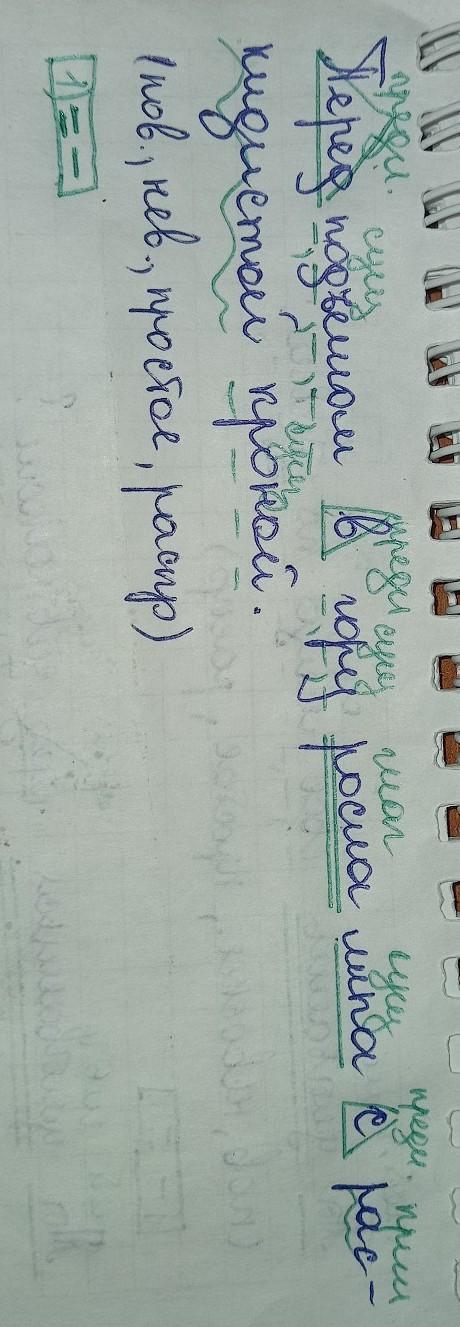 предл. сущ предл сущ глаг сущ предл. прил
Перед подъемом в гору росла липа с рас-
сущ
кидистой кроной.
(пов., нев., простое, распр)